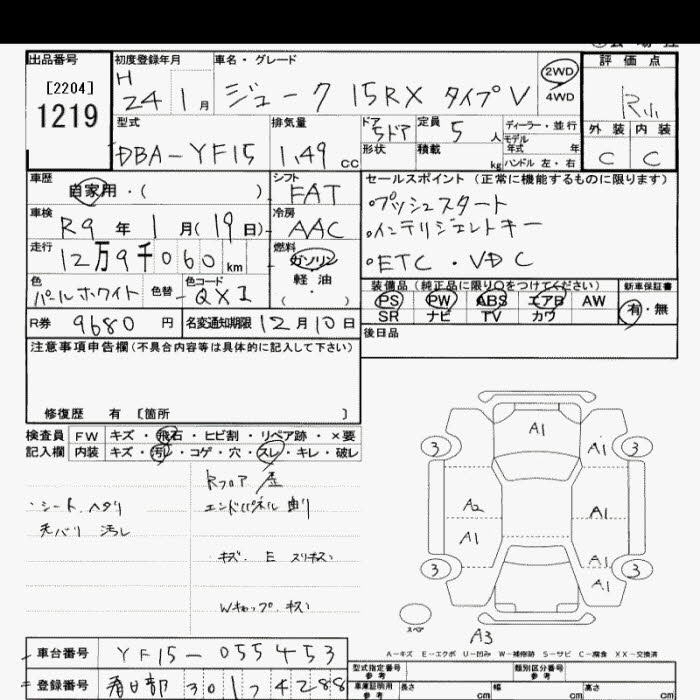 出品番号
[2204]
1219
初度登録年月
H
24 1月
車名・グレード
ジューク 15RX タイプV
2WD
4WD
評価点
R小
外装 内装
C C
型式
DBA-YF15
排気量
1.49 cc
ドア 5ドア
形状
定員 5 人
積載 kg
ディーラー・並行
モデル
年式 年
ハンドル 左・右
車歴
自家用・( )
シフト
FAT
車検
R9 年 1 月(19日)
冷房
AAC
走行
12万9千060 km
燃料
ガソリン
軽油
( ・ )
色
パールホワイト
色替
色コード
QX1
R券 9680 円
名変通知期限 12月10日
セールスポイント (正常に機能するものに限ります)
・プッシュスタート
・インテリジェントキー
・ETC・VDC
装備品 (純正品に限り○をつけてください)
PS PW ABS エアB AW
SR ナビ TV カワ
新車保証書
有・無
後日品
注意事項申告欄(不具合内容等は具体的に記入して下さい)
修復歴 有 [箇所 ]
検査員
記入欄
FW キズ・飛石・ヒビ割・リペア跡・×要
内装 キズ・汚レ・コゲ・穴・スレ・キレ・破レ
・シート ヘタリ
天バリ 汚レ
Rフロア 歪
エンドパネル 曲り
キズ. E スリキズ
Wキャップ キズ
A1
3 A1 3
A2 A1
A1 A1
3 A1 3
スペア
A3
A-キズ E-エクボ U-凹み W-補修跡 S-サビ C-腐食 XX-交換済
車台番号 YF15-055453
登録番号 春日部 301 フ 4288
型式指定番号
参考
類別区分番号
参考
車庫証明用
参考
長さ cm 幅 cm 高さ cm